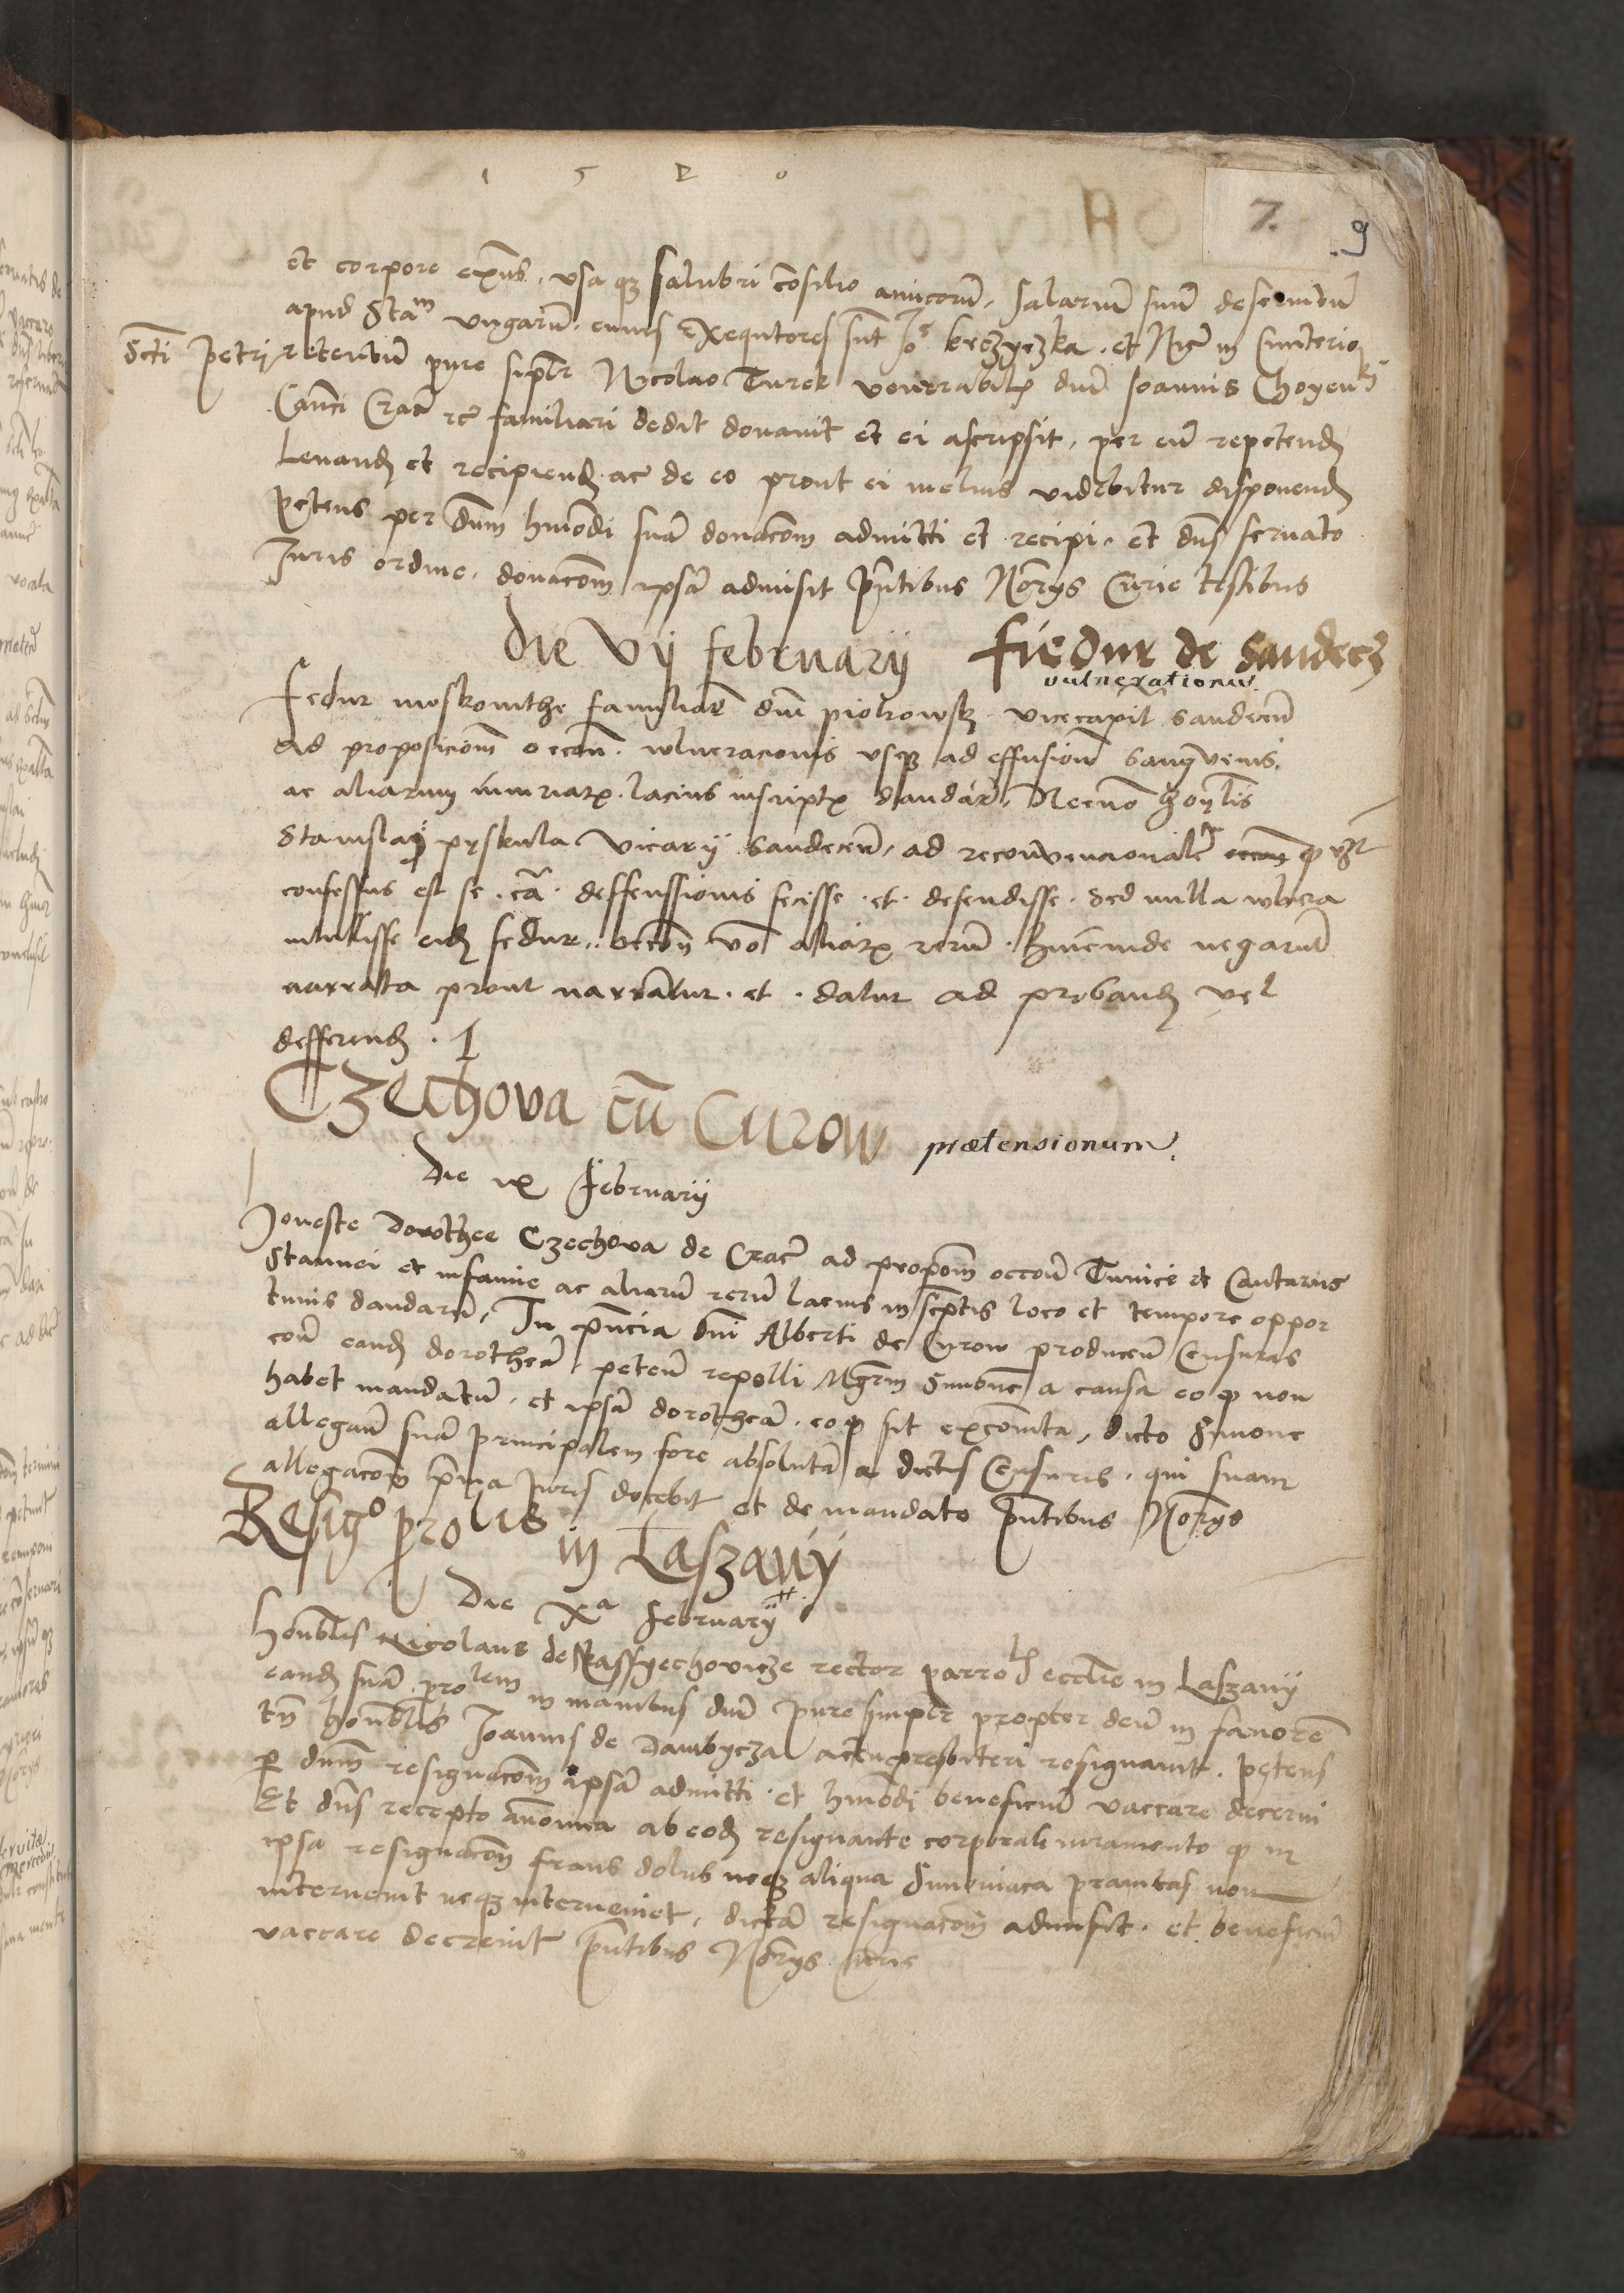 1 5 2 0
7. 9
et corpore exns. vsa q3 salubri cosilio amicoru, salarium suu deseruitu
apud Stam vngaru. cuius Exequtores sut Jo Krczyczka. et Nicr in Cimiterio
Scti Petri retentu pure siplr Nicolao Turek venerabilis dni Joannis Choyenski
Canci Crac rc familiari dedit donavit et ei ascripsit, per eu repetend
Levand et recipiend. ac de eo prout ei melius videbitur disponend
petens per dnm hmodi sua donacom admitti et recipi. et dns servato
Juris ordine. donacom ipsa admisit pntibus Norys Curie testibus
Die vij februarij Fiedur de Sandecz
vulnerationu.
Fedur moskowithe familiar dni piotrowsk. vicecapit Sandecen
ad proposicom occon. wlneracionis vsq3 ad effusion sangvinis.
ac aliarum iniuriar. lacius inscript dandar, Necno honlis
Stanislai pyskula vicarij Sandecen, ad reconvencionale
confessus est se. ca. deffenssionis fecisse. et. defendisse. sed nulla wlnera
intulisse eid fedur. occon vo aliar reru. hincinde negarut
narrata prout narrantur. et. datur ad proband vel
defferend.
Czechova cu Curow prætensionum.
Die ix Februarij
Honeste Dorothee Czechova de Crac ad propom occon Tunice et Cantarus
Stannei et infamie ac aliaru reru lacius in scptis loco et tempore oppor
tunis dandaru, In pncia dni Alberti de Curow producen Censuras
con eand dorothea, peten repelli Mgrm Simone a causa eo q non
habet mandatu, et ipsa dorothea. eo q sit excomita, dicto Simone
allegan sua principalem fore absoluta a dictis Censuris, qui suam
allegacom pma Juris docebit et de mandato pntibus Norys
Resigo prolis in Laszany
Die Xa februarij
Honblis Nicolaus de Kassyechovicze rector parrolis ecclie in Laszany
eand sua prolem in manibus dni pure simplr propter deu in favore
tn honblis Joannis de Dambycza actu presbiteri resignavit. petens
p dnm resignacom ipsa admitti. et hmodi beneficiu vaccare decerni
Et dns recepto anomia ab eod resignante corporali iuramento q in
ipsa resignacom fraus dolus neq3 aliqua Simoniaca pravitas non
intervenit neq3 interveniet, dicta resignacom admisit. et beneficiu
vaccare decrevit pntibus Norys Curie